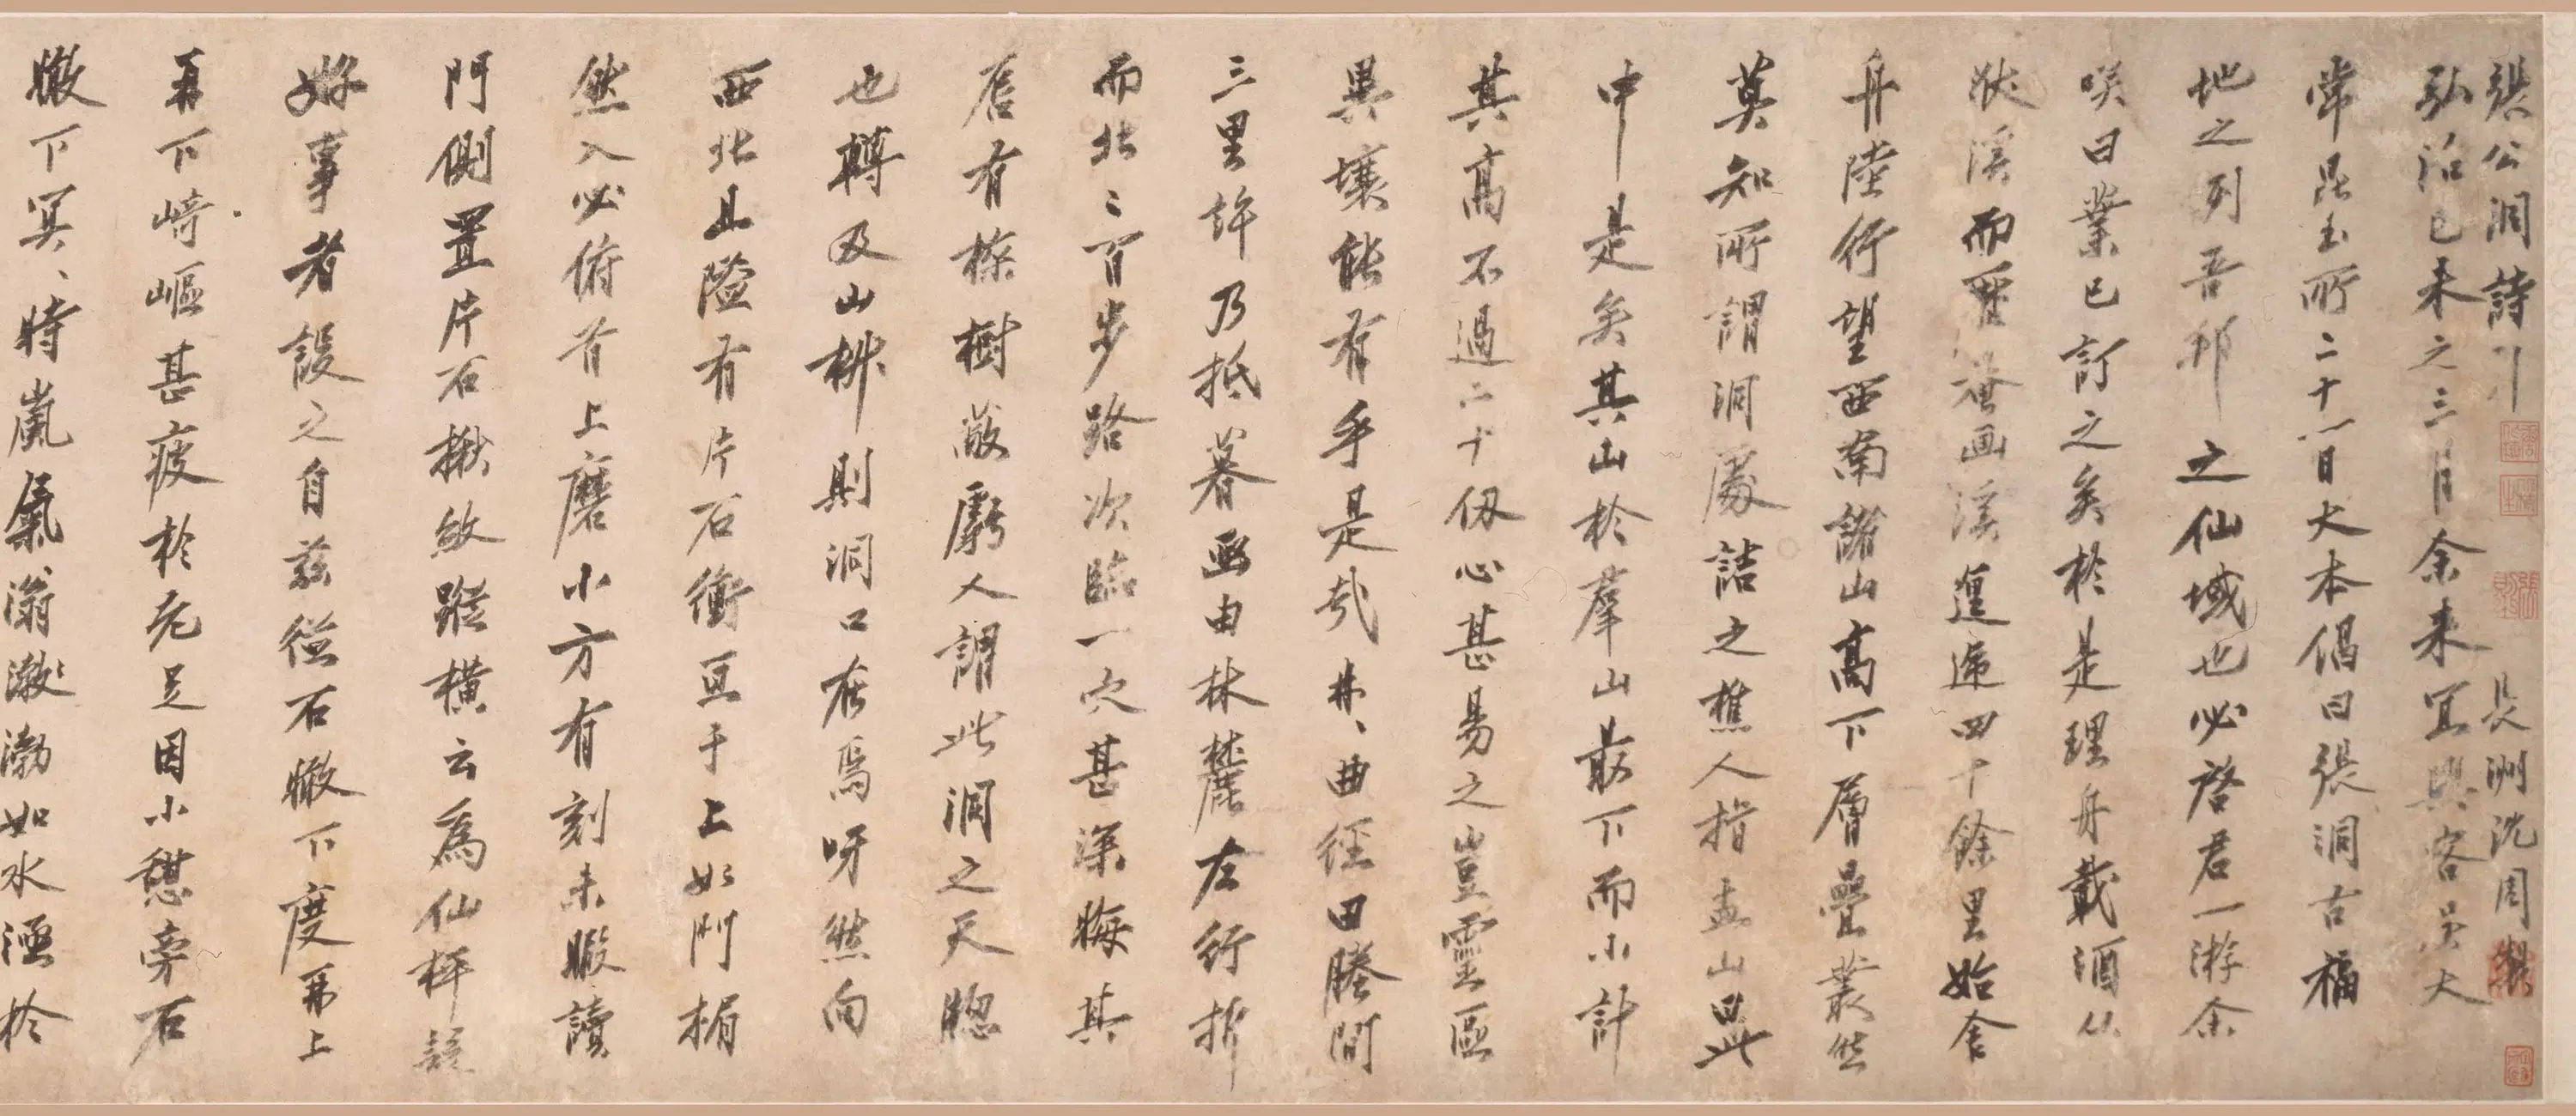 張公洞詩引 長洲沈周製
弘治己未之三月余來宜興客吳大
常昆玉所二十一日大本倡曰張洞古福
地之列吾邦之仙域也必啓君一游余
咲曰業已訂之矣於是理舟載酒從
溪而西發畫溪逶迤四十餘里始舍
舟陸行望西南諸山高下層疊叢然
莫知所謂洞處詰之樵人指盂山曰此
中是矣其山於羣山最下而小計
其高不過二十仞心甚易之豈靈區
異壤能有乎是哉井、曲徑田塍間
三里許乃抵暮画由林麓左行折
而北二百步路次臨一穴甚深晦其
唇有櫟樹蔽虧人謂此洞之天牕
也轉及山椒則洞口在焉呀然向
西北且隘有片石衡亘于上如門楣
然入必俯首上磨小方有刻未暇讀
門側置片石楸紋蹤橫云為仙枰疑
好事者設之自茲從石墩下下度再上
再下崎嶇甚疲於老足因小憩旁石
下冥、時嵐氣滃瀲渤如水湮於